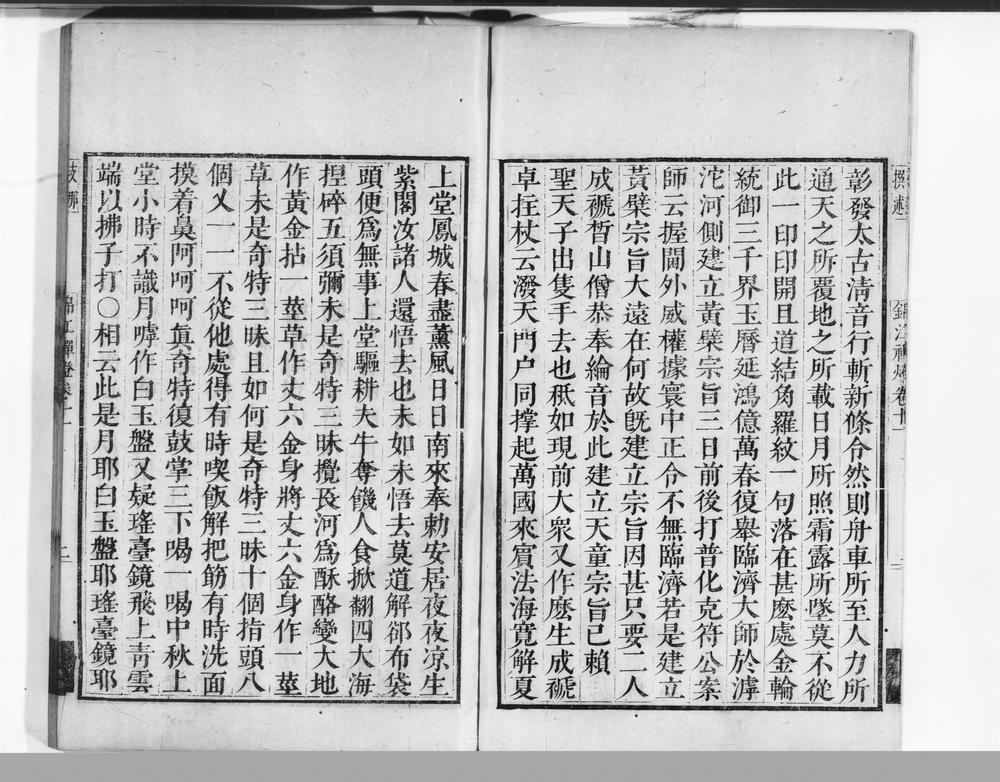 彰發太古淸音行斬新條令然則舟車所至人力所
通天之所覆地之所載日月所照霜露所墜莫不從
此一印印開且道結角羅紋一句落在甚麽處金輪
統御三千界玉曆延鴻億萬春復舉臨濟大師於滹
沱河側建立黃檗宗旨三日前後打普化克符公案
師云握閫外威權據寰中正令不無臨濟若是建立
黃檗宗旨大遠在何故旣建立宗旨因甚只要二人
成褫晢山僧恭奉綸音於此建立天童宗旨已賴
聖天子出隻手去也秖如現前大衆又作麽生成褫
卓拄杖云潑天門户同撐起萬國來賓法海寬解夏
上堂鳳城春盡薰風日日南來奉勅安居夜夜凉生
紫閣汝諸人還悟去也未如未悟去莫道解郤布袋
頭便爲無事上堂驅耕夫牛奪饑人食掀翻四大海
揑碎五須彌未是奇特三昧攪長河爲酥酪變大地
作黃金拈一莖草作丈六金身將丈六金身作一莖
草未是奇特三昧且如何是奇特三昧十個指頭八
個乂一一不從他處得有時喫飯解把筯有時洗面
摸着鼻阿呵呵眞奇特復鼓掌三下喝一喝中秋上
堂小時不識月嘑作白玉盤又疑瑤臺鏡飛上靑雲
端以拂子打〇相云此是月耶白玉盤耶瑤臺鏡耶